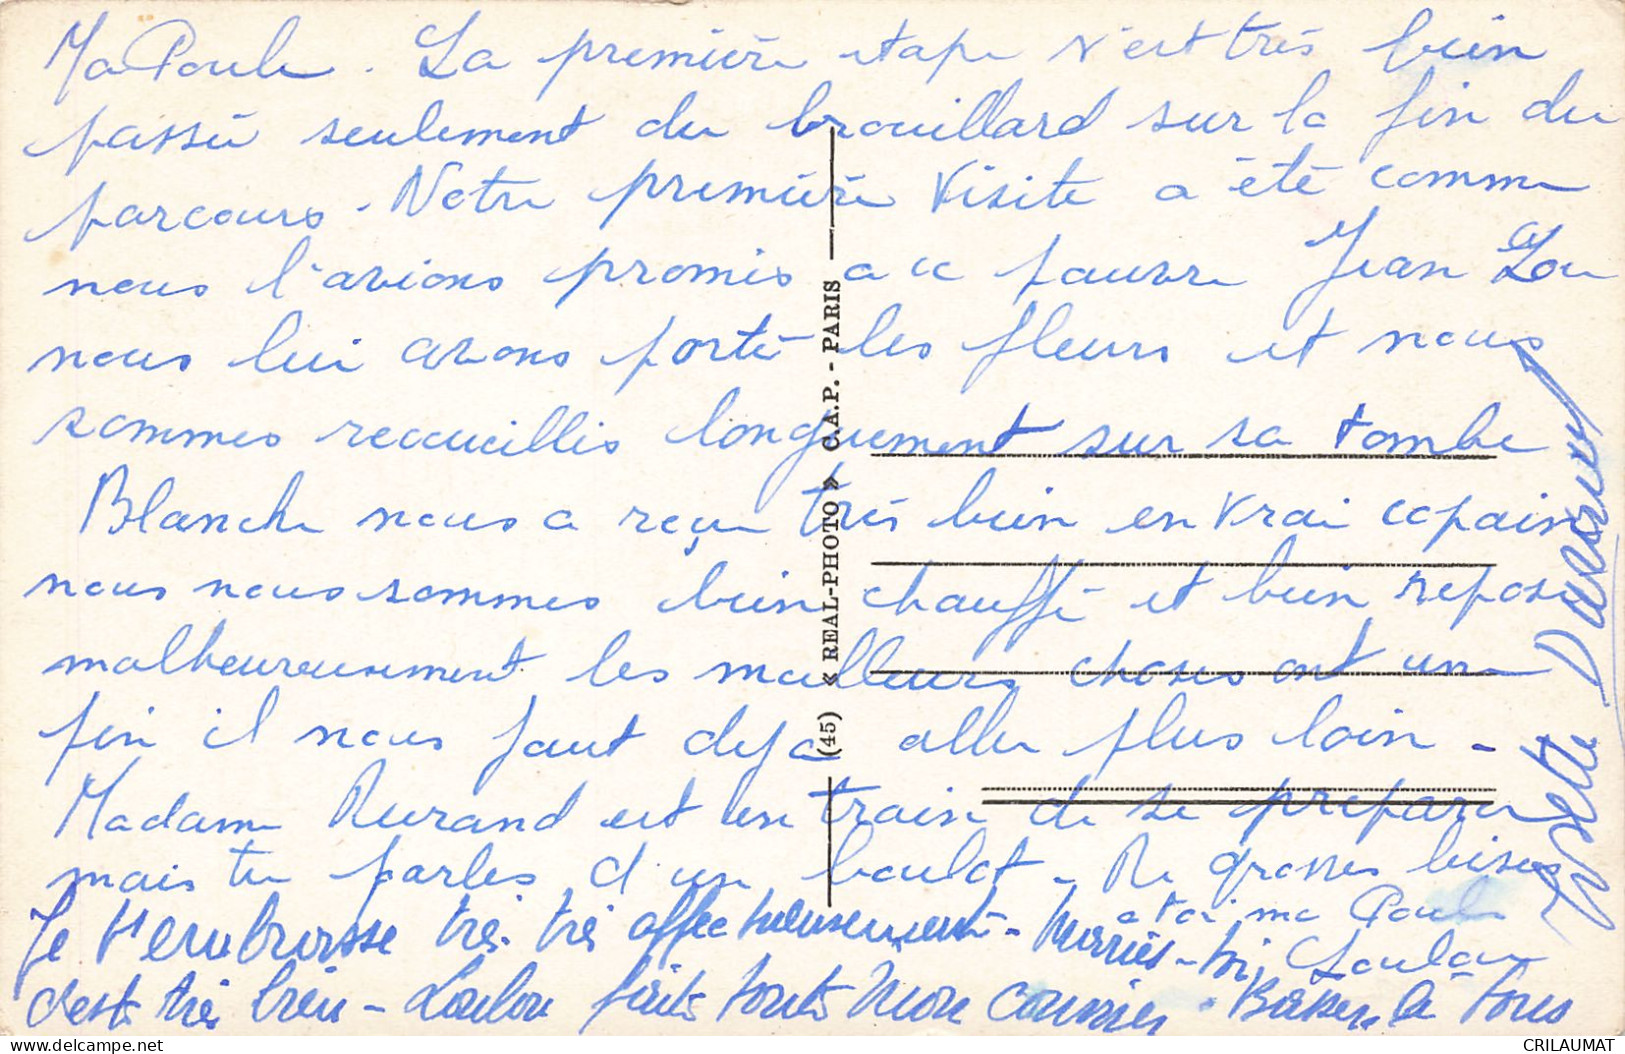 Ma Poule. La première etape s'est très bien
passée seulement du brouillard sur la fin du
parcours. Notre première visite a été comme
nous l'avions promis a ce pauvre Jean Lou
nous lui avons porté les fleurs et nous
sommes recoeuillis longuement sur sa tombe
Blanche nous a reçu très bien en vrai copain
nous nous sommes bien chauffé et bien reposé
malheureusement les meilleurs choses ont une
fin il nous faut deja aller plus loin -
Madame Durand est en train de se preparer
mais tu parles d'un boulot - De grosses bises
a toi ma Poule
Loulou
Je t'embrasse très très affectueusement -
c'est très bien - Loulou fait tout mon courrier. Baisers à tous
« REAL-PHOTO » C.A.P. - PARIS
(45)
CRILAUMAT